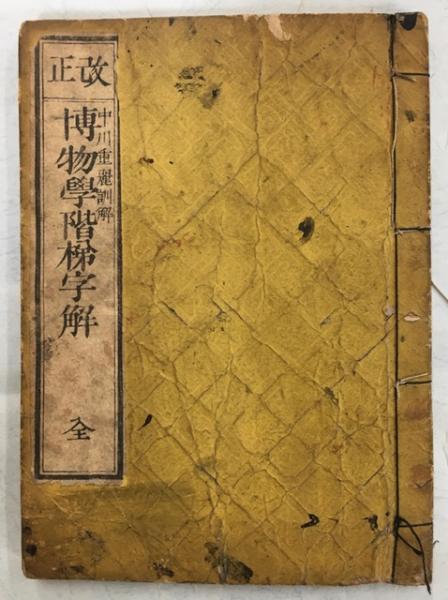 改正
中川重麗訓解
博物學階梯字解
全